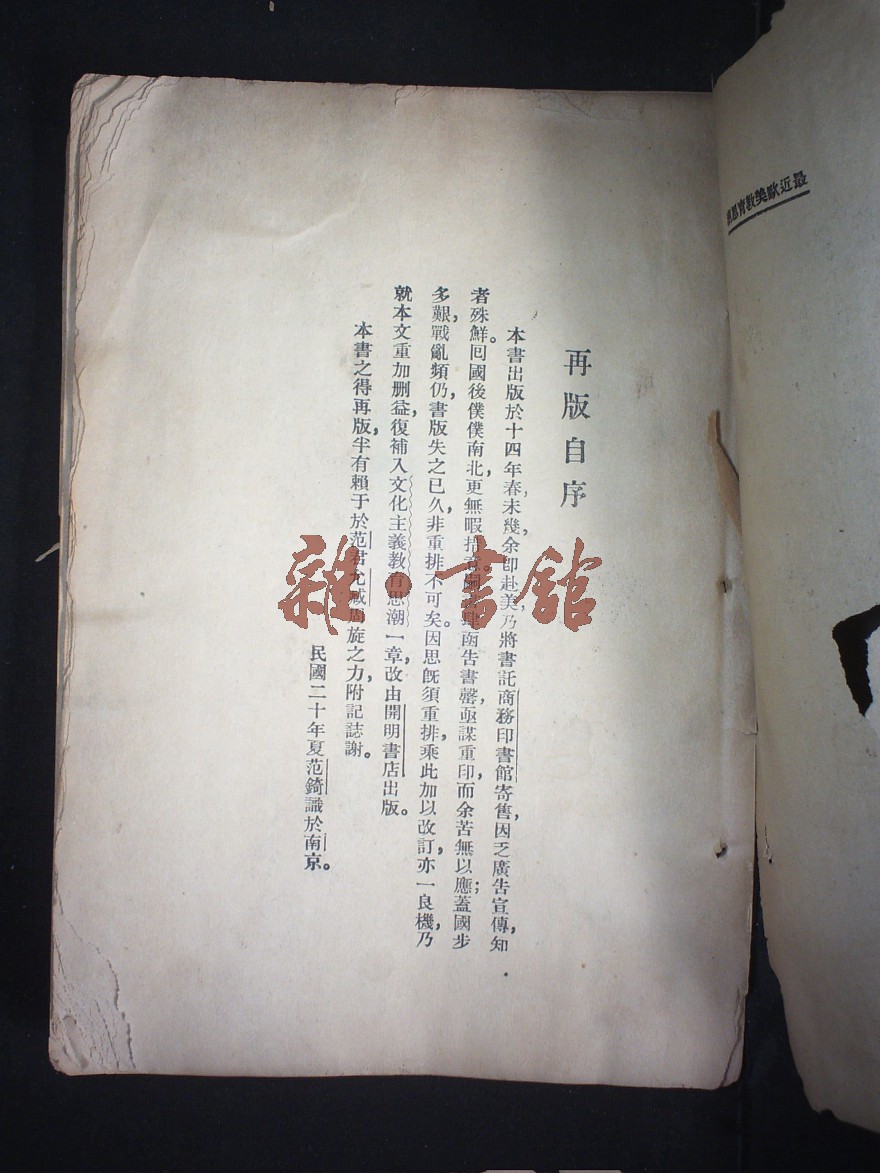 最近歐美教育思
再版自序
本書出版於十四年春，未幾，余卽赴美，乃將書託商務印書館寄售，因乏廣告宣傳，知
者殊鮮。囘國後僕僕南北，更無暇措意。肆函告書罄，亟謀重印，而余苦無以應；蓋國步
多艱，戰亂頻仍，書版失之已久，非重排不可矣。因思旣須重排，乘此加以改訂，亦一良機，乃
就本文重加刪益，復補入文化主義教育思潮一章，改由開明書店出版。
本書之得再版，半有賴于於范君允臧周旋之力，附記誌謝。
民國二十年夏范錡識於南京。
雜·書館